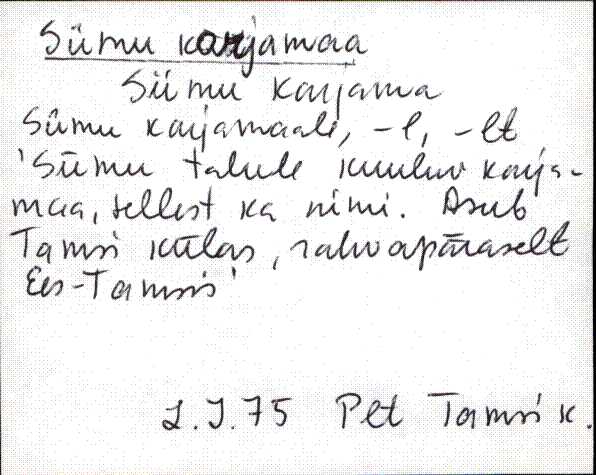 Sümu karjamaa
Sümu karjama
Sümu karjamaale, -l, -lt
'Sümu talule kuuluv karja-
maa, sellest ka nimi. Asub
Tamsi külas, rahvapäraselt
Ees-Tamsis'
L.J.75 Plt Tamsi k.